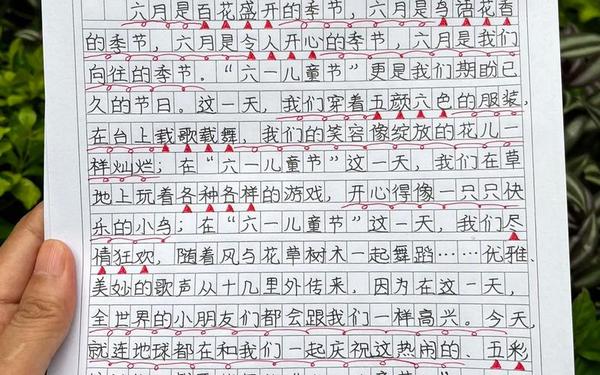 六月是百花盛开的季节，六月是鸟语花香
的季节，六月是令人开心的季节，六月是我们
向往的季节。“六一儿童节”更是我们期盼已
久的节日。这一天，我们穿着五颜六色的服装，
在台上载歌载舞，我们的笑容像绽放的花儿一
样灿烂；在“六一儿童节”这一天，我们在草
地上玩着各种各样的游戏，开心得像一只只快
乐的小鸟；在“六一儿童节”这一天，我们尽
情狂欢，随着风与花草树木一起舞蹈……优雅、
美妙的歌声从十几里外传来，因为在这一天，
全世界的小朋友们都会跟我们一样高兴。今天，
就连地球都在和我们一起庆祝这热闹的、五彩